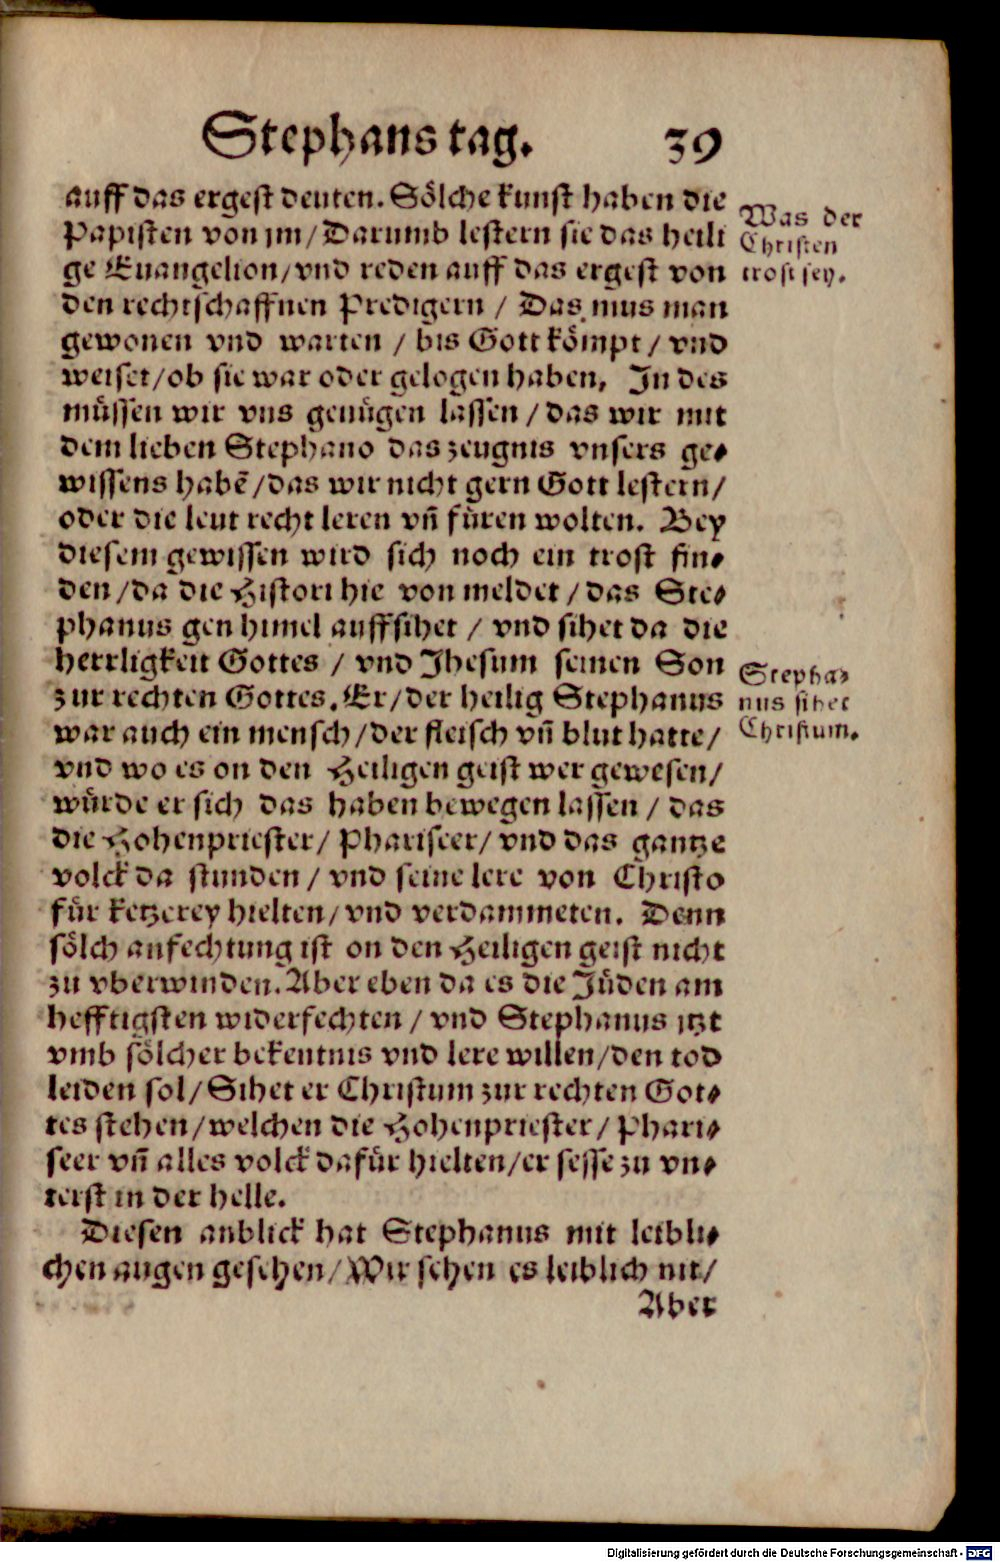 Stephans tag. 39
auff das ergest deuten. Sölche kunst haben die
Papisten von im/Darumb lestern sie das heili
ge Euangelion/vnd reden auff das ergest von
den rechtschaffnen Predigern / Das mus man
gewonen vnd warten / bis Gott kömpt/ vnd
weiset/ob sie war oder gelogen haben. In des
müssen wir vns genügen lassen / das wir mit
dem lieben Stephano das zeugnis vnsers ge⸗
wissens habē/das wir nicht gern Gott lestern/
oder die leut recht leren vn̄ füren wolten. Bey
diesem gewissen wird sich noch ein trost fin⸗
den/da die Histori hie von meldet/das Ste⸗
phanus gen himel auffsihet / vnd sihet da die
herrligkeit Gottes / vnd Jhesum seinen Son
zur rechten Gottes. Er/der heilig Stephanus
war auch ein mensch/der fleisch vn̄ blut hatte/
vnd wo es on den Heiligen geist wer gewesen/
würde er sich das haben bewegen lassen / das
die Hohenpriester/ Phariseer/ vnd das gantze
volck da stunden / vnd seine lere von Christo
für ketzerey hielten/vnd verdammeten. Denn
sölch anfechtung ist on den Heiligen geist nicht
zu vberwinden. Aber eben da es die Jüden am
hefftigsten widerfechten / vnd Stephanus itzt
vmb sölcher bekentnis vnd lere willen/den tod
leiden sol/Sihet er Christum zur rechten Got⸗
tes stehen/welchen die Hohenpriester/ Phari⸗
seer vn̄ alles volck dafür hielten/er sesse zu vn⸗
terst in der helle.
Diesen anblick hat Stephanus mit leibli⸗
chen augen gesehen/Wir sehen es leiblich nit/
Aber
Was der
Christen
trost sey.
Stepha⸗
nus sihet
Christum.
Digitalisierung gefördert durch die Deutsche Forschungsgemeinschaft - DFG